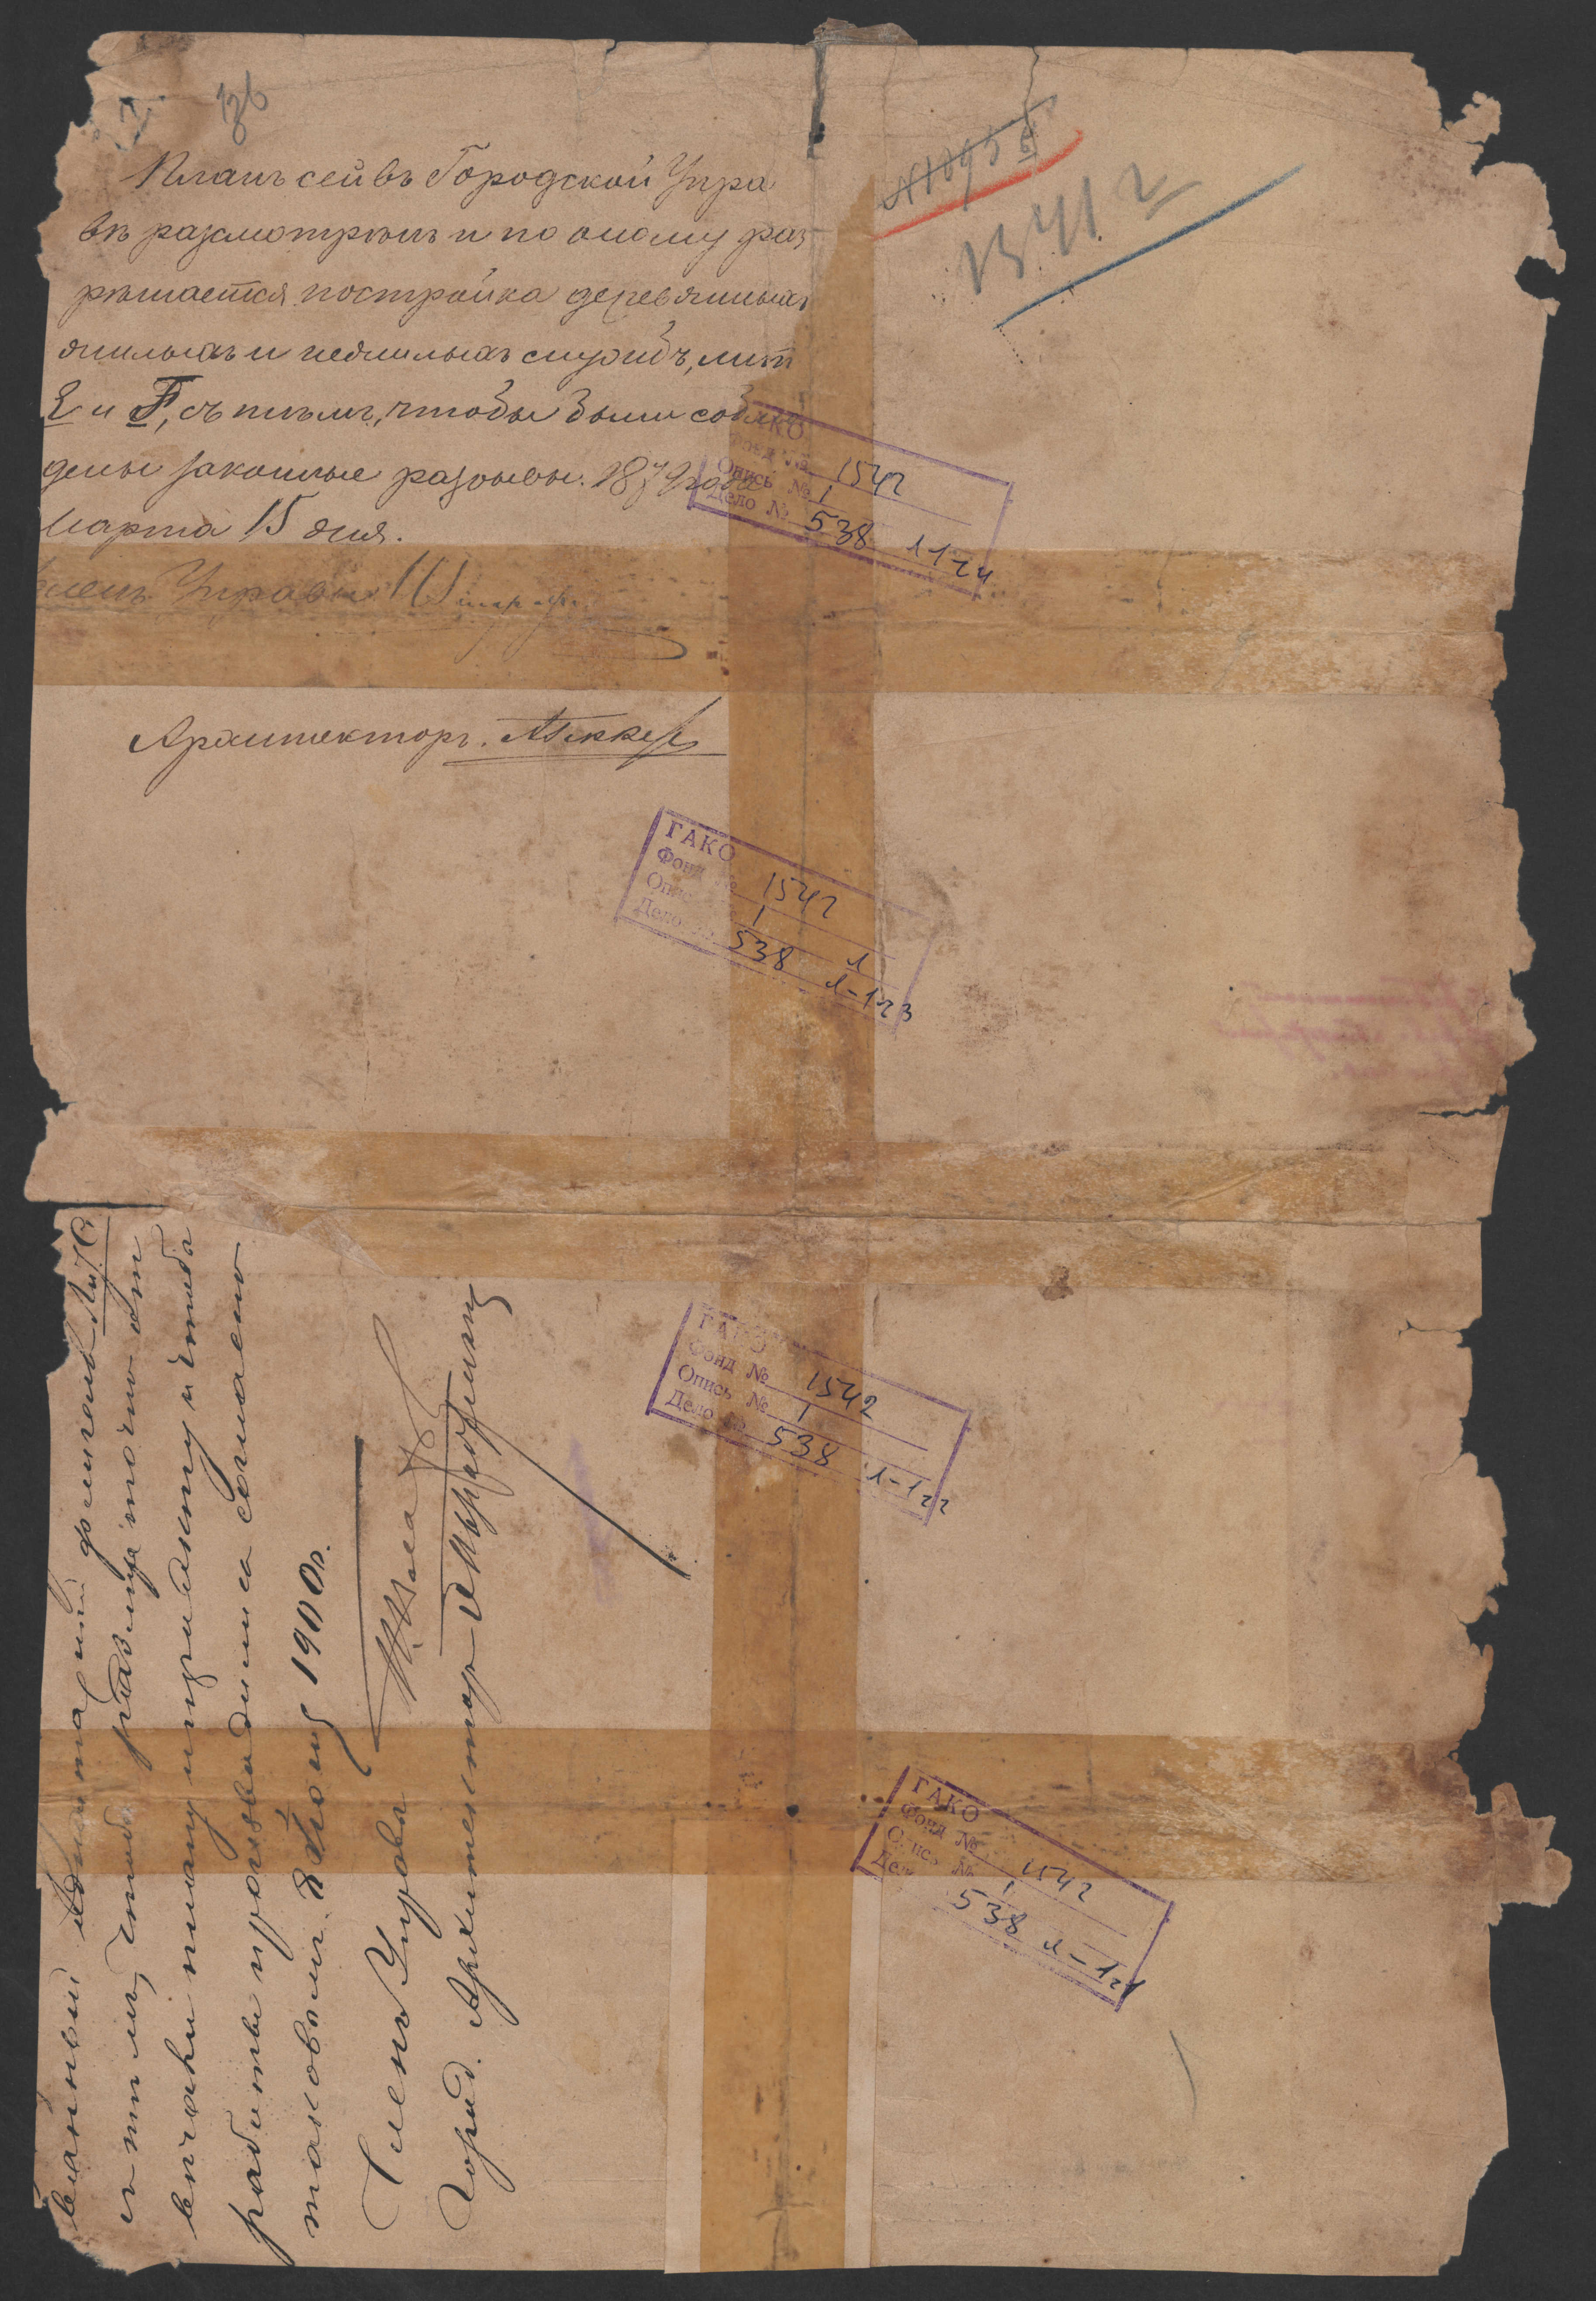 136
Планъ сей въ Городской Упра
вѣ разсмотрѣнъ и по оному раз
рѣшается постройка деревянныхъ
жилыхъ и нежилыхъ службъ, лит
E и F, съ тѣмъ, чтобы были соблю
дены законные разрывы. 1879 года
Марта 15 дня.
Членъ Управы
Архитекторъ.
1341 2
ГАКО
Фонд № 1542
Опись № 1
Дело № 538 л 124
ГАКО
Фонд № 1542
Опись № 1
Дело № 538 л
л-123
ГАКО
Фонд № 1542
Опись № 1
Дело № 538 л-122
ГАКО
Фонд № 1542
Опись № 1
Дело 538 л-121
ванный флигель Лит. С
съ тѣмъ, чтобъ разбивка точно отъ
вѣчала плану и проэкту и чтобъ
работы производились согласно
таковымъ. 8 Іюня 1900 г.
Членъ Управы
Город. Архитекторъ